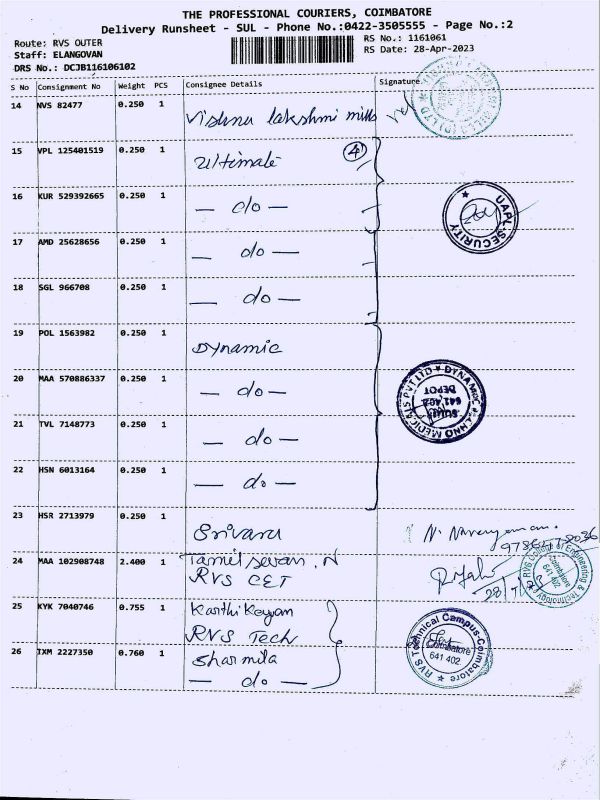 THE PROFESSIONAL COURIERS, COIMBATORE
Delivery Runsheet - SUL - Phone No.:0422-3505555 - Page No.:2
Route: RVS OUTER
RS No.: 1161061
Staff: ELANGOVAN
RS Date: 28-Apr-2023
DRS No.: DCJB116106102
S No Consignment No Weight PCS Consignee Details Signature
14 NVS 82477 0.250 1 Vishnu lakshmi mills
15 VPL 125401519 0.250 1 Ultimate 4
16 KUR 529392665 0.250 1 — do —
UAPL-SECURITY
17 AMD 25628656 0.250 1 — do —
18 SGL 966708 0.250 1 — do —
19 POL 1563982 0.250 1 Dynamic
20 MAA 570886337 0.250 1 — do —
DYNAMIC TECHNO MEDICALS PVT LTD
SULUR
641 402
DEPOT
21 TVL 7148773 0.250 1 — do —
22 HSN 6013164 0.250 1 — do —
23 HSR 2713979 0.250 1 Srivaru
24 MAA 102908748 2.400 1 Tamil Selvan. N
RVS CET
RVS College of Engineering & Technology
Coimbatore
641 402
25 KYK 7040746 0.755 1 Karthikeyan
RVS Tech
RVS Technical Campus-Coimbatore
Coimbatore
641 402
26 IXM 2227350 0.760 1 Sharmila
— do —